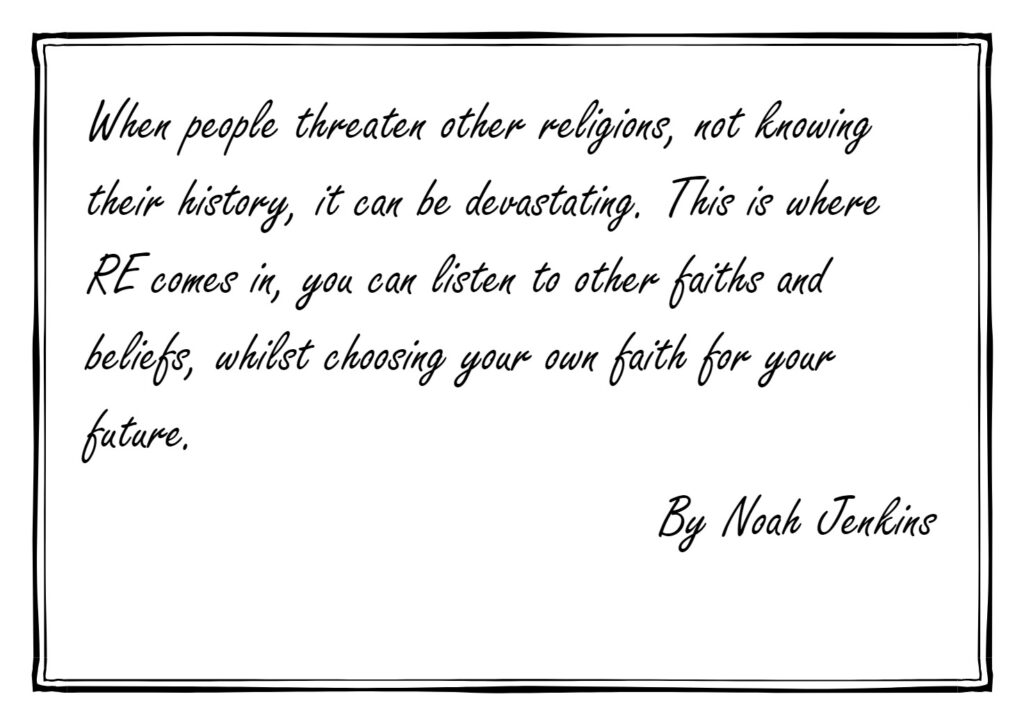 When people threaten other religions, not knowing
their history, it can be devastating. This is where
RE comes in, you can listen to other faiths and
beliefs, whilst choosing your own faith for your
future.
By Noah Jenkins